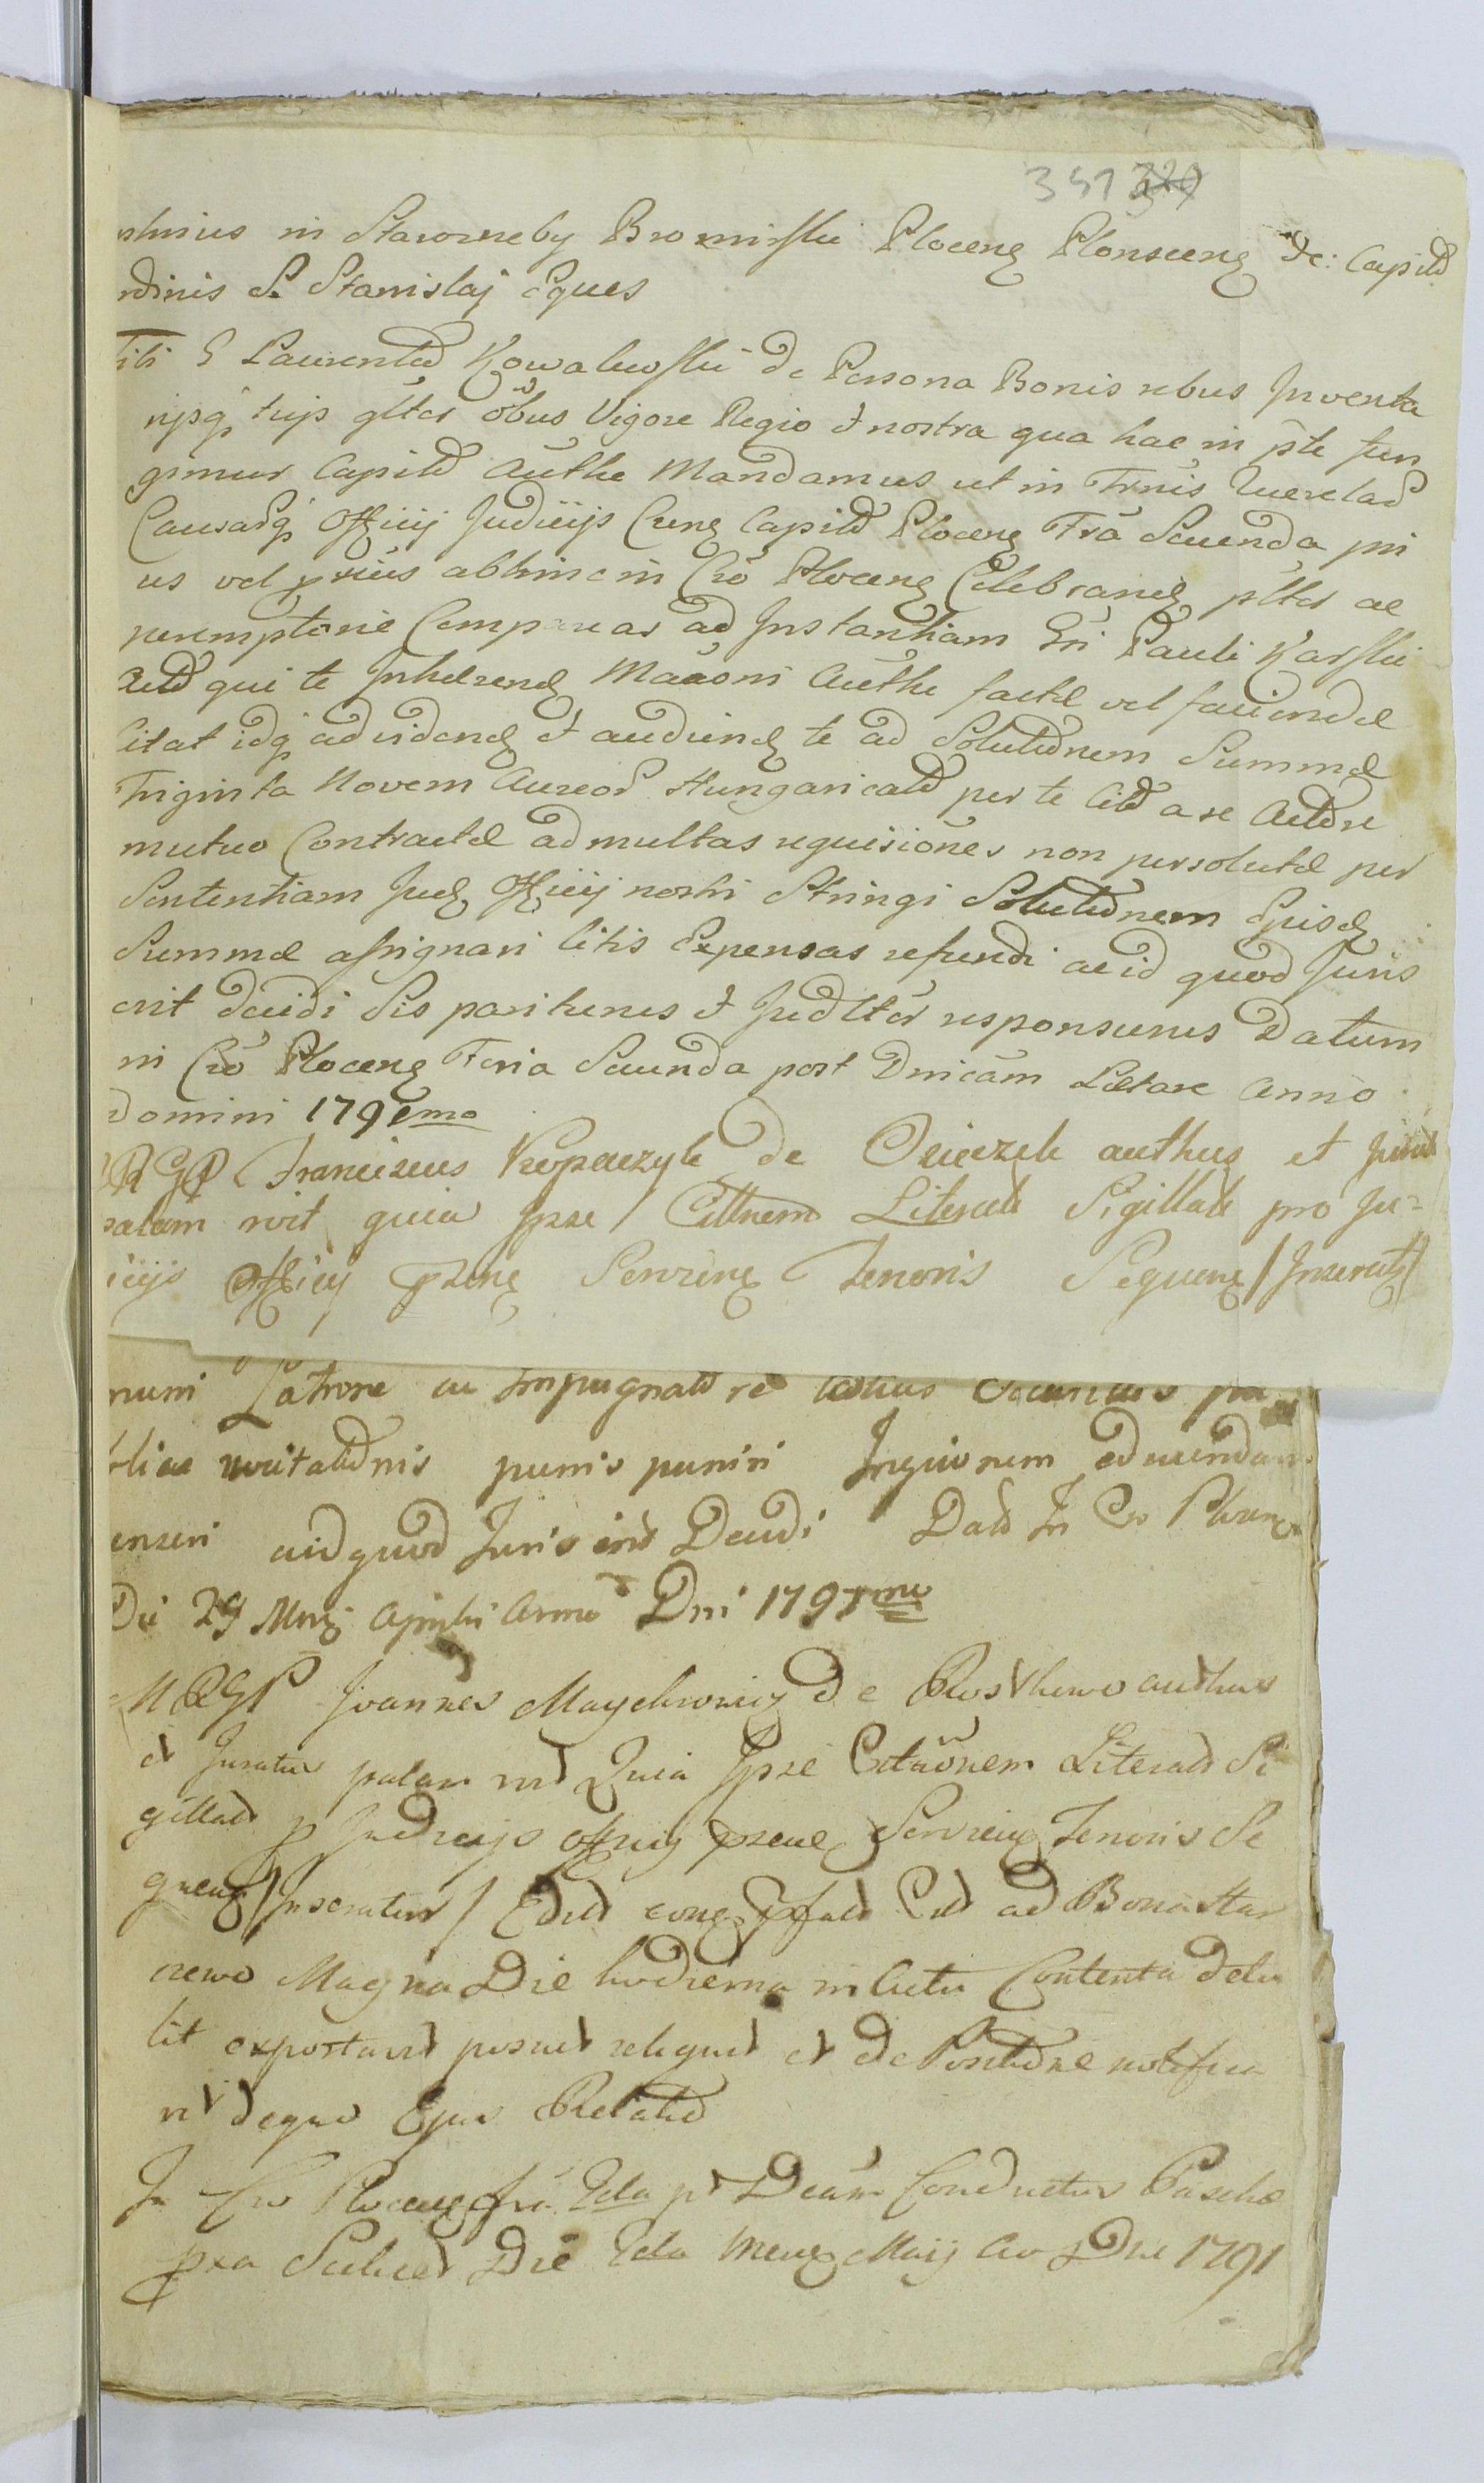 351 329
in Staroweby Bromirski Plocens Plonscens &c: Capits
rdinis S. Stanislaj Eques
Tibi G Laurentio Kowalewski de Persona Bonis rebus Inventa
rijsq tuis gltr oibus Vigore Regio et nostra qua hac in pte fun
gimur Capitli Authe Mandamus ut in Trnis Querelar
Causarq Officij Judicijs Crens Capitli Plocens Fra Secunda pri
us vel prius abhinc in Cro Plocens Celebrand pltr ac
peremptorie Compareas ad Instantiam Gri Pauli Karski
Act qui te Inherend Maoni Authe factæ vel faciendæ
Citat idq ad vidend et audiend te ad Solutionem Summæ
Triginta Novem Aureor Hungaricali per te Cit a se Actore
mutuo Contractæ ad multas requisiones non persolutæ per
Sententiam Jud Officij nostri Stringi Solutionem Ejusd
Summæ assignari Litis Expensas refundi ac id quod Juris
erit decidi Sis pariturus et Judltr responsurus Datum
in Cro Plocens Feria Secunda post Dnicam Lætare Anno
Domini 1791mo
MRGP Franciscus Kopaczyk de authus et Jurat
palam rvit quia Ipse Cittnem Literat Sigillat pro Ju=
icijs Officij Pzens Servien Tenoris Sequens /Inseratr/
Latrone ac Impugnatore
publicæ punis puniri
enseri ac id quod Juris erit Decidi Dat In Cro Plocens
Die 29 Mens Aprilis Anno Dni 1791mo
MRGP Joannes Maychrowicz de Rostkowo authus
et Juratus palam rvit Quia Ipse Citaonem Literat Si
gillat p Judicijs officij pzene Servien Tenoris Se
quens /Inseratur/ Edid Cit ad Bona Star
orewo Magna Die hodierna in Actu Contenta detu
lit exportavit posuit reliquit et de Positione notifica
vit deque Ejus Relatio
In Cro Plocens fra 2da pt Dcam Conductus Paschæ
pxa Scilicet Die 2da Mens Maij Ao Dni 1791